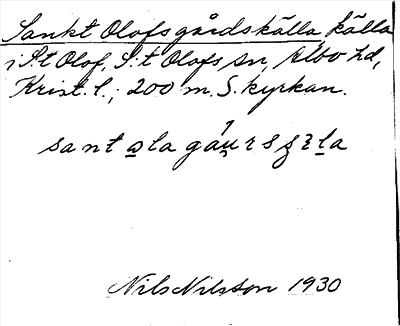 Sankt Olofsgårdskälla källa
i S:t Olof, S:t Olofs sn, Albo hd,
Krist. l.; 200 m. S. kyrkan.
Nils Nilsson 1930